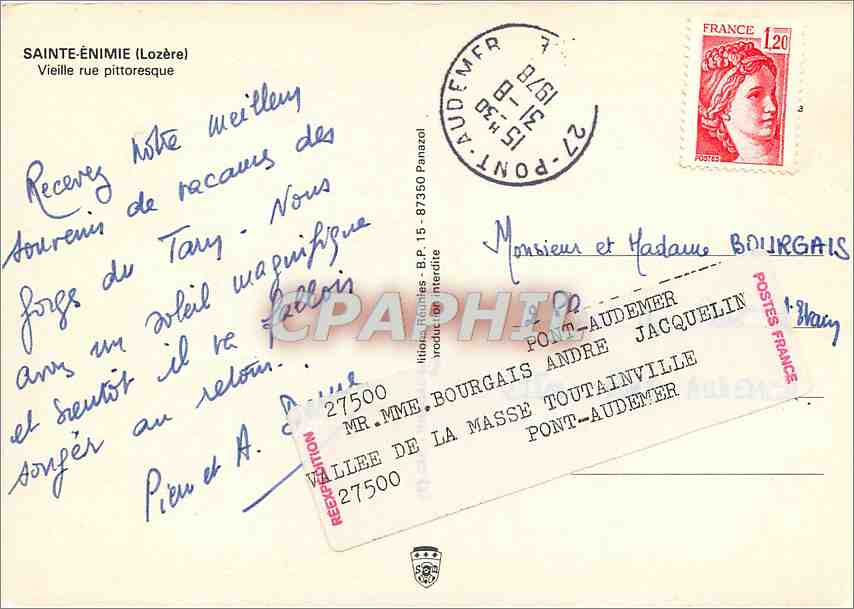 SAINTE-ÉNIMIE (Lozère)
Vieille rue pittoresque
Recevez notre meilleurs
souvenirs de vacances des
gorges du Tarn - Nous
avons un soleil magnifique
et bientôt il va falloir
songer au retour.
Pierre et A.
27-PONT-AUDEMER
15 H 30
31-8
1978
FRANCE
1,20
POSTES
Editions Réunies - B.P. 15 - 87350 Panazol
reproduction interdite
Monsieur et Madame BOURGAIS
CPAPHIL
REEXPEDITION
POSTES FRANCE
27500 PONT-AUDEMER
MR.MME.BOURGAIS ANDRE JACQUELIN
VALLEE DE LA MASSE TOUTAINVILLE
27500 PONT-AUDEMER